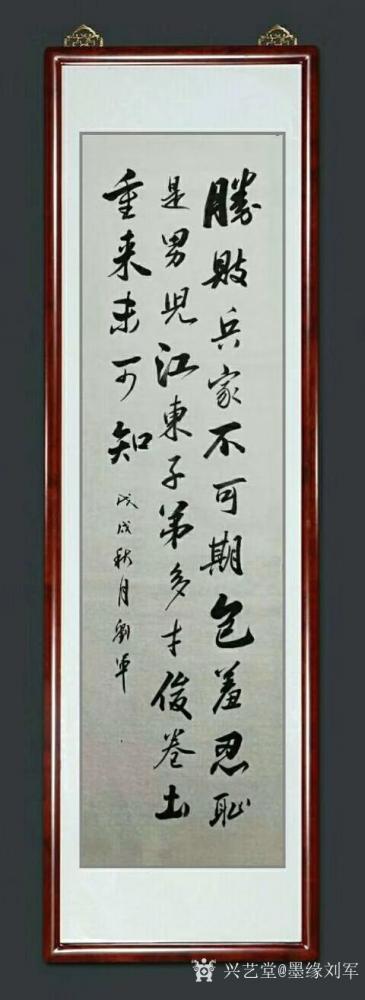 勝敗兵家不可期包羞忍恥
是男児江東子弟多才俊卷土
重来未可知
戊戌秋月劉軍
兴艺堂@墨缘刘军